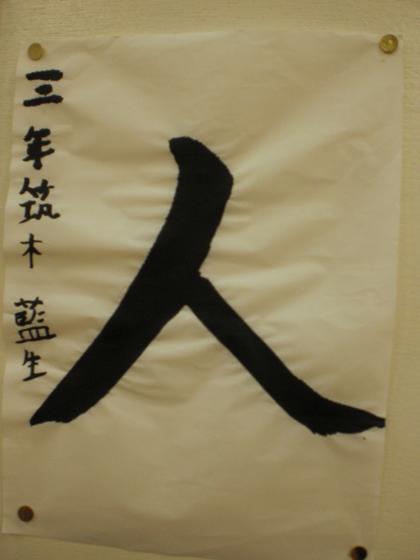 人
三年筑木藍生